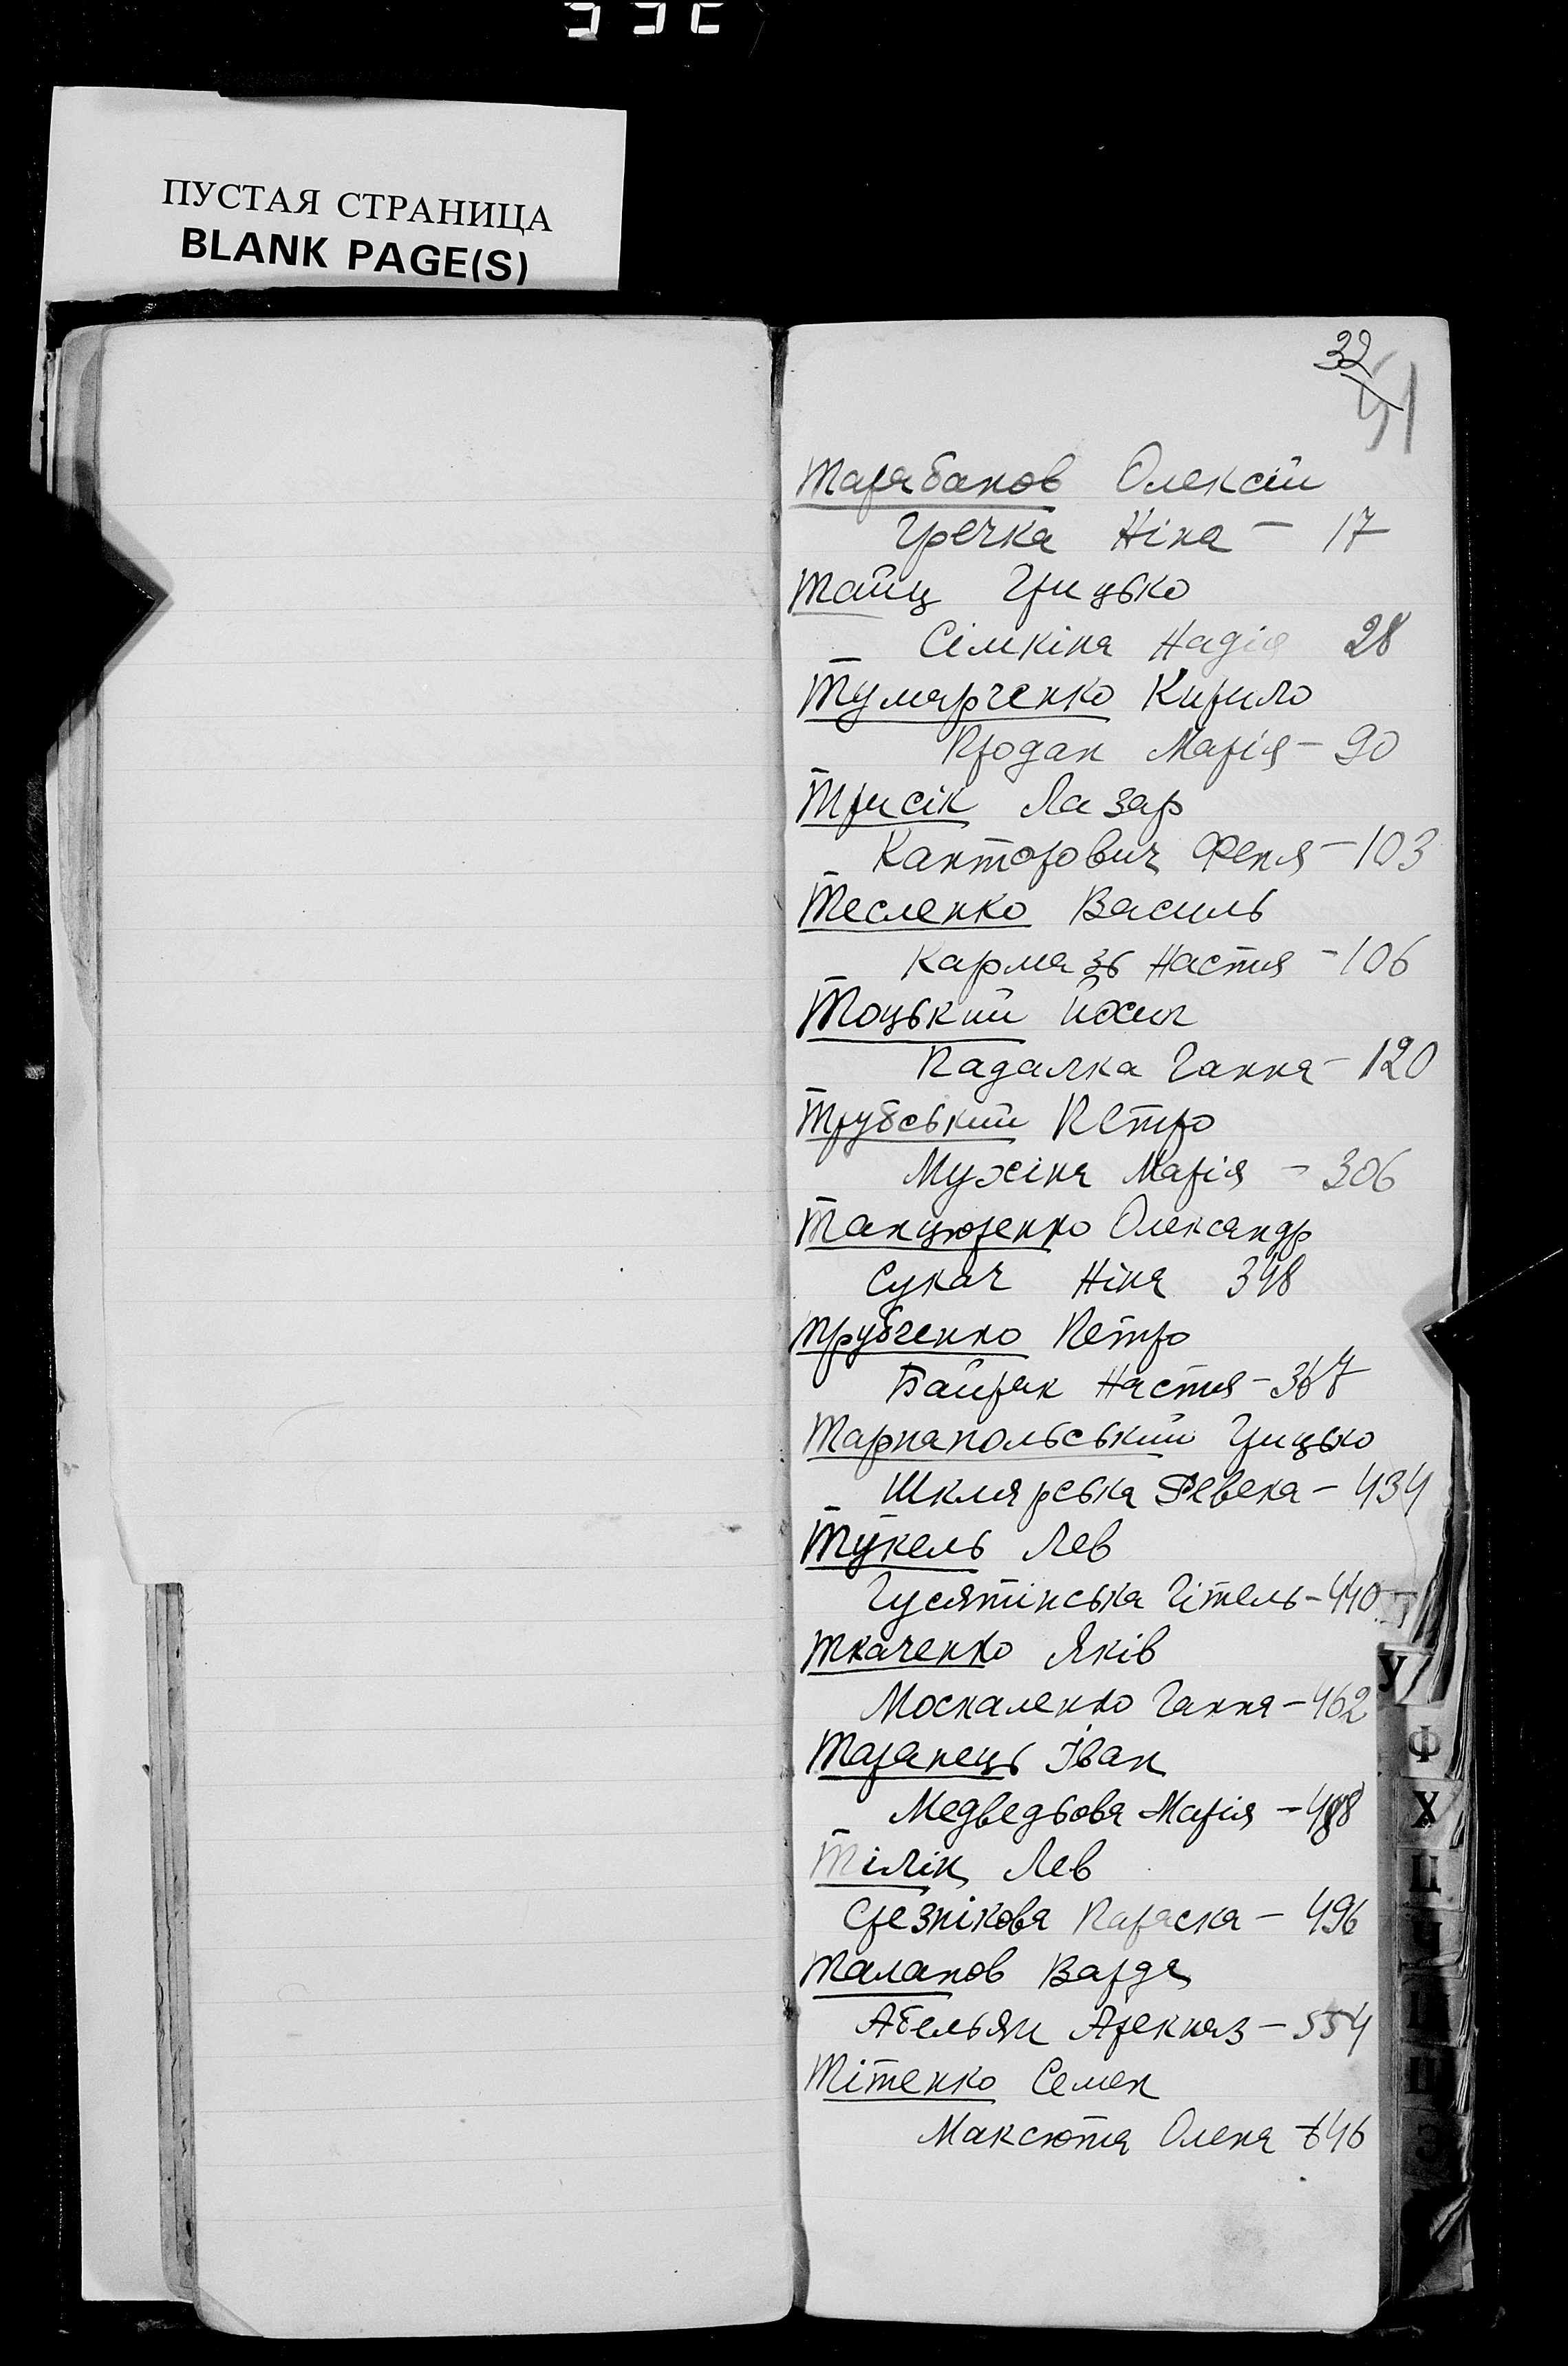 ПУСТАЯ СТРАНИЦА
BLANK PAGE(S)
32
41
Тарабанов Олексій
Гречка Ніна – 17
Тайц Грицько
Сімкіна Надія 28
Тумарченко Кирило
Продан Марія – 90
Трисік Лазар
Канторович Феня – 103
Тесленко Василь
Кармазь Настя – 106
Тоцький Йосип
Падалка Ганна – 120
Трубський Петро
Мухіна Марія – 306
Танцюренко Олександр
Сукач Ніна 348
Трубченко Петро
Байрак Настя – 367
Тарнапольський Грицько
Шклярська Ревека – 434
Тукель Лев
Гусятінська Гітель – 440
Ткаченко Яків
Москаленко Ганна – 462
Таранець Іван
Медведьова Марія – 488
Тілік Лев
Срезнікова Параска – 496
Таланов Варда
Абельян Арекназ – 554
Тітенко Семен
Максюта Олена – 646
У
Ф
Х
Ц